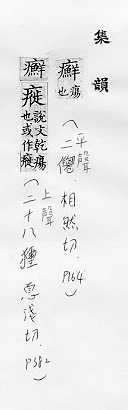 集韻
癬瘍也(平聲二僊 相然切.P164)
癬㿍說文乾瘍也或作㿍(上聲二十八獮 息淺切.P382)